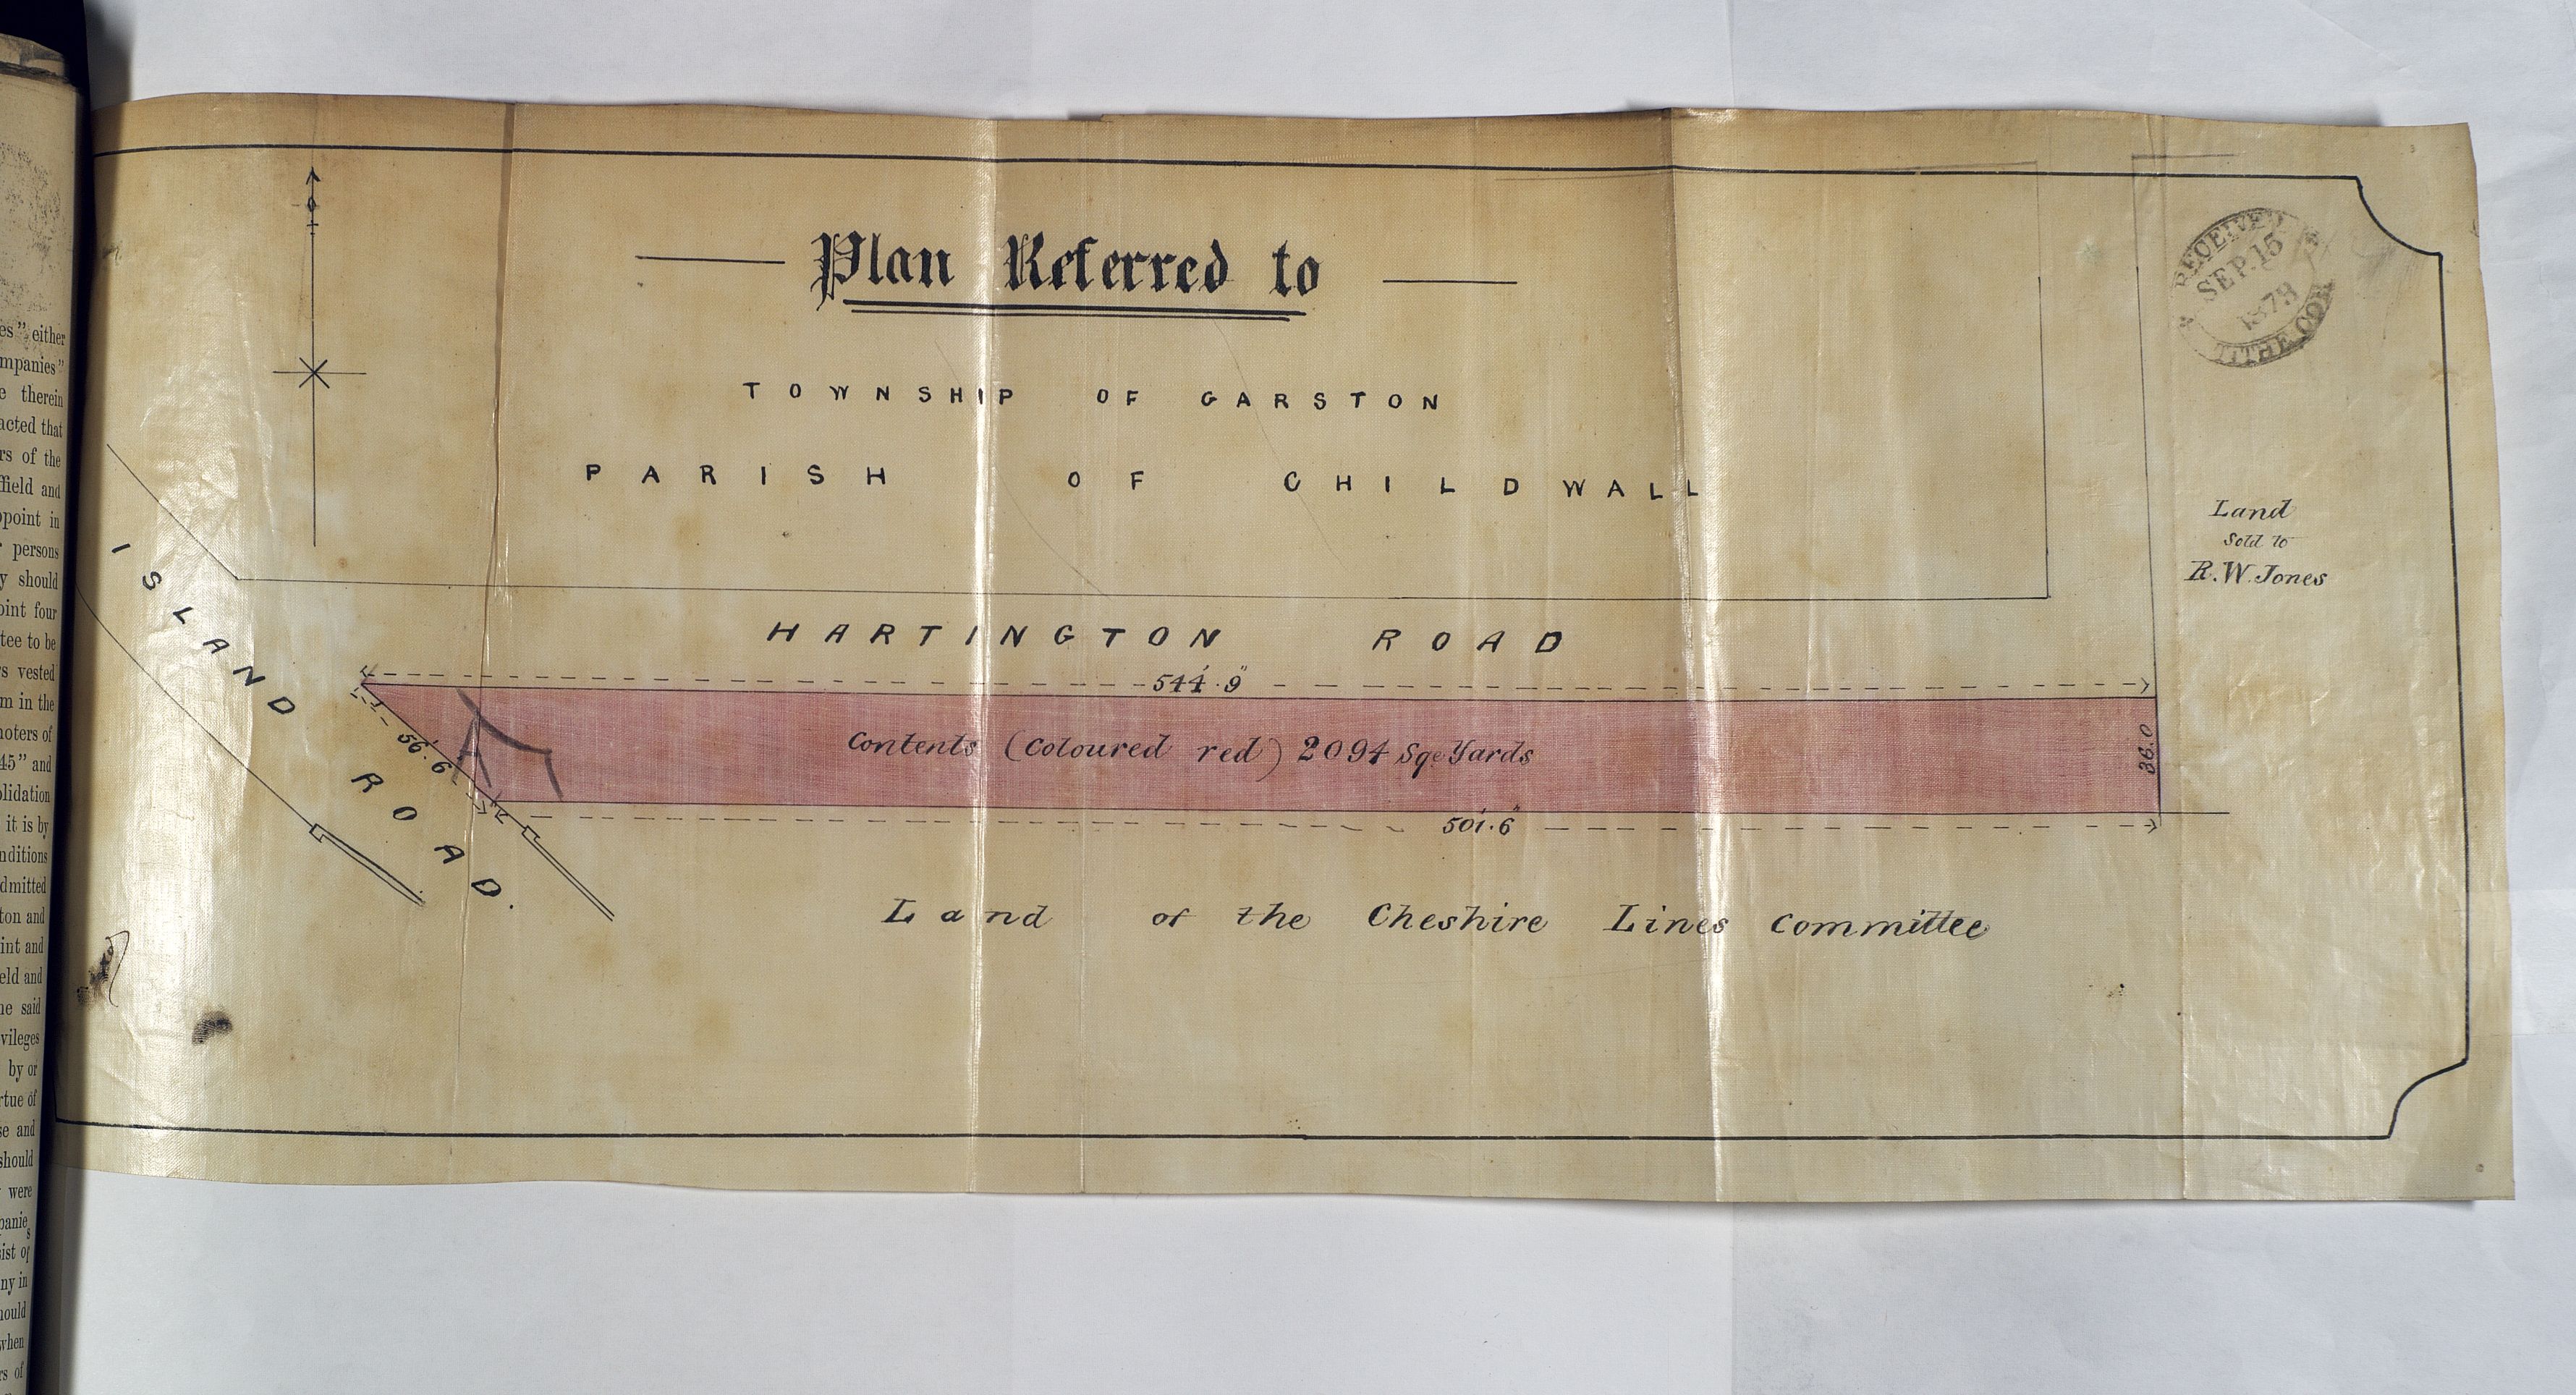 es" either
mpanies"
e therein
acted that
rs of the
ffield and
ppoint in
persons
y should
oint four
tee to be
rs vested
m in the
noters of
45" and
olidation
it is by
nditions
dmitted
ton and
int and
eld and
he said
vileges
by or
rtue of
se and
should
were
panies
ist of
ny in
hould
when
rs of
Plan Referred to
RECEIVED
SEP. 15
1873
TITHE COM
TOWNSHIP OF GARSTON
PARISH OF CHILDWALL
Land
Sold to
R.W. Jones
ISLAND ROAD.
HARTINGTON ROAD
544'.9"
56'.6
Contents (Coloured red) 2094 Sqe Yards
36.0
501'.6"
Land of the Cheshire Lines Committee